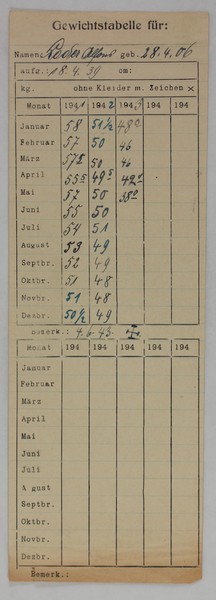 Gewichtstabelle für:
Namen: Alfons geb. 28.4.06
aufg.: 18.4.39 cm:
kg. ohne Kleider m. Zeichen ×
Monat 1941 1942 1943 194 194
Januar 58 51½ 48
Februar 57 50 46
März 57 50 46
April 55⁵ 49⁵ 42
Mai 57 50 38
Juni 55 50
Juli 54 51
August 53 49
Septbr. 52 49
Oktbr. 51 48
Novbr. 51 48
Dezbr. 50½ 49
Bemerk.: 4.6.43.
Monat 194 194 194 194 194
Januar
Februar
März
April
Mai
Juni
Juli
August
Septbr.
Oktbr.
Novbr.
Dezbr.
Bemerk.: